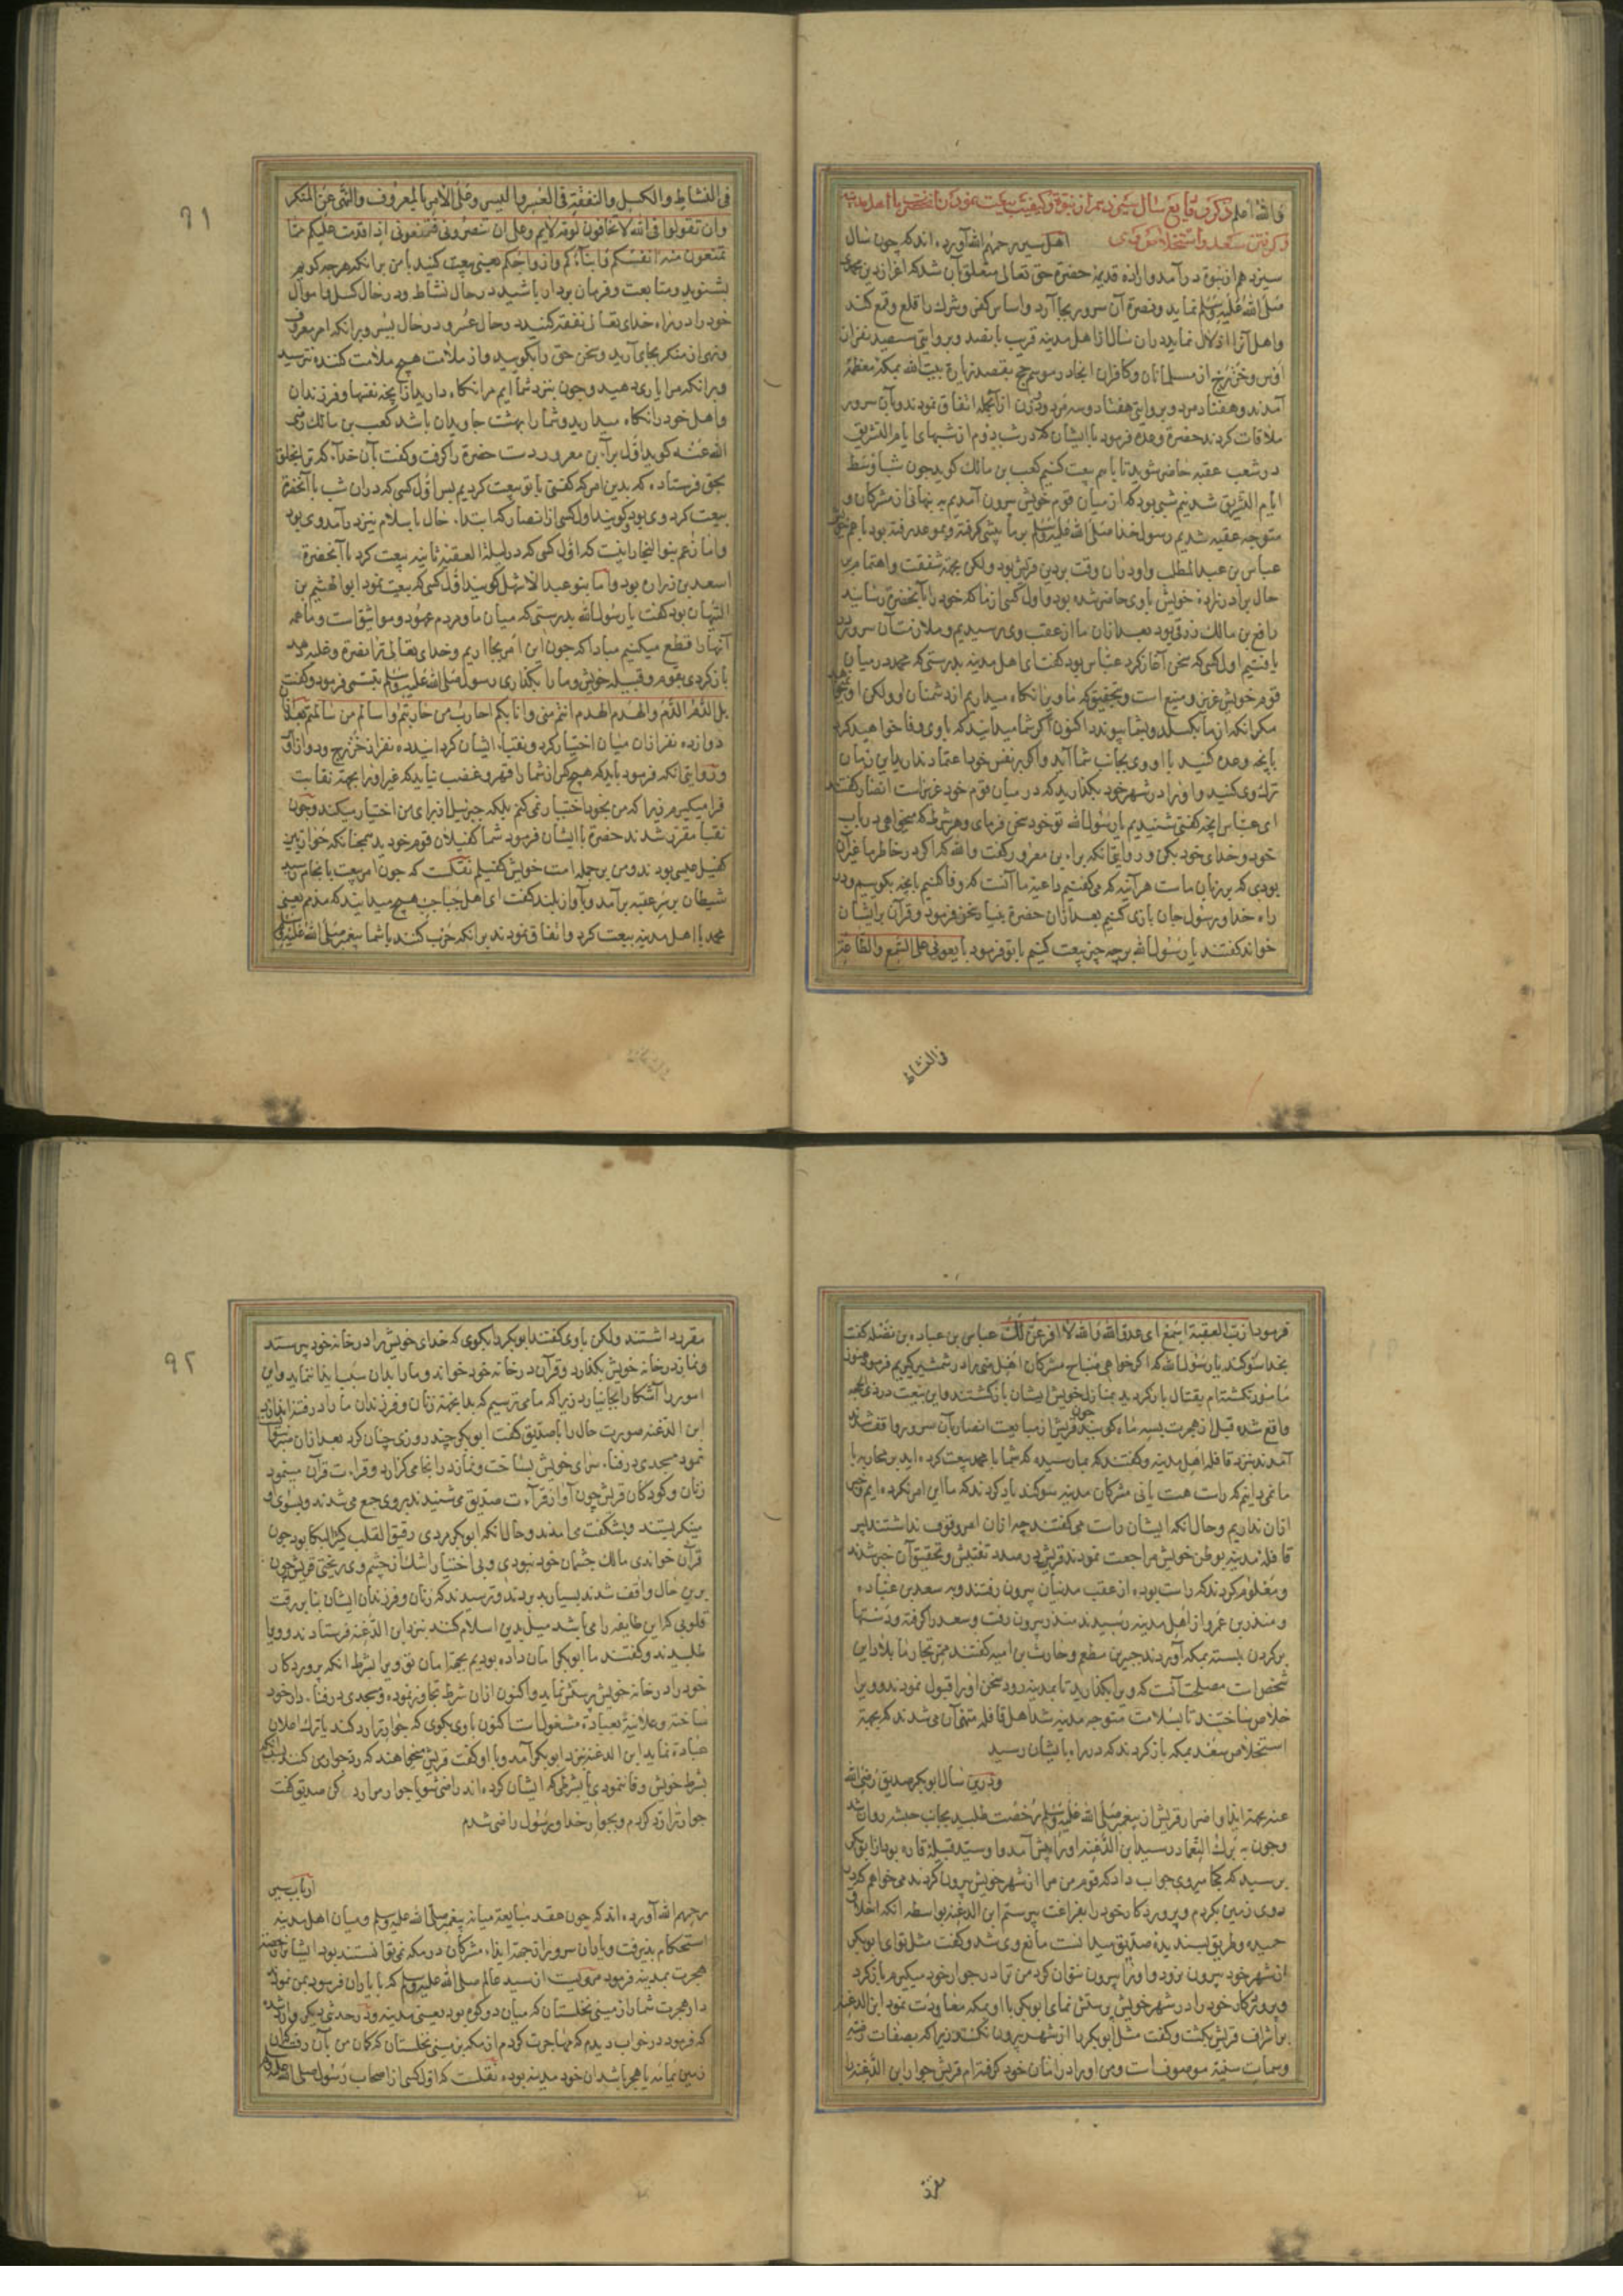 والله اعلم ذکر وقایع سال سیزدهم از نبوة وکیفیت بیعت نمودن آنحضرت با اهل مدینه
اهل سیر رحمهم الله آورده اند که چون سال
سیزدهم از نبوة درآمد واراده قدیمه حضرة حق تعالی متعلق بآن شد که اعزاز دین محمدی
صلی الله علیه وسلم نماید ونصرة آن سرور بجا آرد واساس کفر وشرک را قلع وقمع کند
واهل آنرا اذلال نماید دران سال از اهل مدینه قریب پانصد وبروایتی سیصد نفر از
اوس وخزرج از مسلمانان وکافران ایجاد در موسم حج بقصد زیارة بیت الله بمکه معظمه
آمدند وهفتاد مرد وبروایتی هفتاد وسه مرد ودو زن ازانجمله اتفاق نمودند وبآن سرور
ملاقات کردند حضرة وعده فرمود باایشان که در شب دوم از شبهای ایام التشریق
در شعب عقبه حاضر شوید تا باهم بیعت کنیم کعب بن مالک کوید چون شب اوسط
ایام التشریق شد نیم شبی بود که از میان قوم خویش بیرون آمدیم به نهانی از مشرکان و
متوجه عقبه شدیم رسول خدا صلی الله علیه وسلم بر ما پیشی کرفته وبموعد رفته بود با عم خویش
عباس بن عبد المطلب واو دران وقت بر دین قریش بود ولکن بجهة شفقت واهتمام بر
حال برادرزاده خویش باوی حاضر شده بود واول کسی از ما که خود را بآنحضرة رسانید
رافع بن مالک زرقی بود بعد ازان ما از عقب وی رسیدیم وملازمت آن سرور
یافتیم اول کسی که سخن آغاز کرد عباس بود کفت ای اهل مدینه بدرستی که محمد در میان
قوم خویش عزیز ومنیع است وبتحقیق که ما ویرا نکاه میداریم از دشمنان او ولکن او نمیخواهد
مکر انکه از ما بکسلد وبشما پیوندد اکنون اکر شما میدانید که باوی وفا خواهید کرد
بانچه وعده کنید با او وی بجانب شما آید واکر بر نفس خود اعتماد ندارید این زمان
ترک وی کنید واورا در شهر خود بکذارید که در میان قوم خود عزیز است انصار کفتند
ای عباس انچه کفتی شنیدیم یا رسول الله تو خود سخن فرمای وهر شرط که میخواهی در باب
خود وخدای خود بکن ودر روایتی آنکه براء بن معرور کفت والله که اکر در خاطر ما غیر آن
بودی که بر زبان ماست هر آینه که می کفتیم داعیه ما آنست که وفا کنیم بانچه بکوییم ودر
راه خدا ورسول جان بازی کنیم بعد ازان حضرة بنیاد سخن فرمود وقرآن بر ایشان
خواند کفتند یا رسول الله بر چه چیز بیعت کنیم با تو فرمود بایعونی علی السمع والطاعة
فی النشاط
فی النشاط والکسل والنفقة فی العسر والیسر وعلی الامر بالمعروف والنهی عن المنکر
وان تقولوا فی الله لا تخافون لومة لایم وعلی ان تنصرونی فتمنعونی اذا قدمت علیکم مما
تمنعون منه انفسکم وابناءکم وازواجکم یعنی بیعت کنید با من بر انکه هرچه کویم
بشنوید ومتابعت وفرمان بردار باشید در حال نشاط ودر حال کسل واموال
خود را در راه خدای تعالی نفقه کنید در حال عسر ودر حال یسر وبر انکه امر معروف
ونهی از منکر بجای آرید وسخن حق را بکویید واز ملامت هیچ ملامت کننده نترسید
وبر انکه مرا یاری دهید وچون بنزد شما آیم مرا نکاه دارید از آنچه نفسها وفرزندان
واهل خود را نکاه میدارید وشما را بهشت جاویدان باشد کعب بن مالک رضی
الله عنه کوید اول براء بن معرور دست حضرة را کرفت وکفت بآن خدای که ترا بخلق
بحق فرستاده که بدین امر که کفتی با تو بیعت کردیم پس اول کسی که دران شب با آنحضرة
بیعت کرد وی بود
واما زعم بنو النجار اینست که اول کسی که در لیلة العقبه ثانیه بیعت کرد با آنحضرة
اسعد بن زراره بود واما بنو عبد الاشهل کویند اول کسی که بیعت نمود ابو الهثیم بن
التیهان بود کفت یا رسول الله بدرستی که میان ما ومردم عهود ومواثیق است وما همه
آنها را قطع میکنیم مبادا که چون این امر بجا آریم وخدای تعالی ترا نصرة وغلبه دهد
باز کردی بقوم وقبیله خویش وما را بکذاری رسول صلی الله علیه وسلم تبسمی فرمود وکفت
بل الدم الدم والهدم الهدم انتم منی وانا بکم احارب من حاربتم واسالم من سالمتم
دوازده نفر ازان میان اختیار کرد ونقباء ایشان کردانید نه نفر از خزرج
ودر روایتی آنکه فرمود باید که هیچ کس از شما را قهر وغضب نیاید که غیر اورا بجهة نقابت
فرا میکیرم زیرا که من بخود اختیار نمی کنم بلکه جبرئیل از برای من اختیار میکند وچون
نقبا مقرر شدند حضرة باایشان فرمود شما کفیلان قوم خودید همچنانکه حواریین
کفیل عیسی بودند ومن بر جمله امت خویش کفیلم نقلست که چون امر بیعت بانجام رسید
شیطان بر سر عقبه برآمد وبآواز بلند کفت ای اهل جباجب هیچ میدانید که مذمم یعنی
محمد با اهل مدینه بیعت کرد واتفاق نمودند بر انکه حرب کنند با شما پیغمبر صلی الله علیه وسلم
۹۱
فرمود ازب العقبة اسمع ای عدو الله والله لافرغن لک عباس بن عباده بن نضله کفت
بخدا سوکند یا رسول الله که اکر خواهی صباح مشرکان اهل منی را در شمشیر کیریم فرمود هنوز
مامور نکشته ام بقتال باز کردید بمنازل خویش ایشان بازکشتند واین بیعت در ذی حجه
واقع شده قبل از هجرت بسه ماه کویند چون قریش از مبایعت انصار بآن سرور واقف شدند
آمدند بنزد قافله اهل مدینه وکفتند که بما رسیده که شما با محمد بیعت کرده اید بر محاربه ما
ما نمی دانیم که راست هست یا نی مشرکان مدینه سوکند یاد کردند که ما این امر نکرده ایم وخبر
ازان نداریم وحال انکه ایشان راست می کفتند چه ازان امر وقوف نداشتند پس
قافله مدینه بوطن خویش مراجعت نمودند قریش در صدد تفتیش وتحقیق آن خبر شدند
ومعلوم کردند که راست بوده از عقب مدنیان بیرون رفتند وبه سعد بن عباده
ومنذر بن عمرو از اهل مدینه رسیدند منذر بیرون رفت وسعد را کرفته ودستها
بر کردن بسته بمکه آوردند جبیر بن مطعم وحارث بن امیه کفتند ممر تجار ما بلاد این
شخص است مصلحت آنست که ویرا بکذارید تا بمدینه رود سخن اورا قبول نمودند وویرا
خلاص ساختند تا بسلامت متوجه مدینه شد اهل قافله متهیآن می شدند که بجهة
استخلاص سعد بمکه باز کردند که در راه بایشان رسید
ودرین سال ابوبکر صدیق رضی الله
عنه بجهة ایذا واضرار قریش از پیغمبر صلی الله علیه وسلم رخصت طلبید بجانب حبشه روان شد
وچون به برک الغماد رسید ابن الدغنه اورا پیش آمد واو سید قبیله قاره بود از ابوبکر
پرسید که کجا میروی جواب داد که قوم من مرا از شهر خویش بیرون کردند می خواهم که در
روی زمین بکردم وپروردکار خود را بفراغت پرستم ابن الدغنه بواسطه انکه اخلاق
حمیده وطریق پسندیده صدیق میدانست مانع وی شد وکفت مثل تو ای ابوبکر
از شهر خود بیرون نرود واورا بیرون نتوان کرد من ترا در جوار خود میکیرم باز کرد
وپروردکار خود را در شهر خویش پرستش نمای ابوبکر با او بمکه معاودت نمود ابن الدغنه
بر اشراف قریش بکشت وکفت مثل ابوبکر را از شهر بیرون نکنند زیرا که بصفات
وسمات سنیه موصوف است ومن اورا در امان خود کرفته ام قریش جوار ابن الدغنه را
مقرر داشتند ولکن باوی کفتند ابوبکر را بکوی که خدای خویش را در خانه خود پرستد
ونماز در خانه خویش بکذارد وقرآن در خانه خود خواند وما را بدان سبب ایذا ننماید واین
امور را آشکارا بجا نیارد زیرا که ما می ترسیم که بدانجهة زنان وفرزندان ما را در فتنه اندازد
ابن الدغنه صورت حال را با صدیق کفت ابوبکر چند روزی چنان کرد بعد ازان
نمود مسجدی در فناء سرای خویش بساخت ونماز در انجا می کزارد وقراءت قرآن مینمود
زنان وکودکان قریش چون آواز قراءت صدیق می شنیدند بر وی جمع می شدند وبسوی او
مینکریستند وبشکفت می امدند وحال آنکه ابوبکر مردی رقیق القلب کثیر البکا بود چون
قرآن خواندی مالک چشمان خود نبودی وبی اختیار اشک از چشم وی ریختی قریش چون
برین حال واقف شدند بسیار بد بردند وترسیدند که زنان وفرزندان ایشان بنا بر رقت
قلوبی که این طایفه را می باشد میل بدین اسلام کنند بنزد ابن الدغنه فرستادند وویرا
طلبیدند وکفتند ما ابوبکر را امان داده بودیم بجهة امان تو ویرا بشرط انکه پروردکار
خود را در خانه خویش پرستش نماید واکنون ازان شرط تجاوز نموده ومسجدی در فناء دار خود
ساخته وعلانیة بعبادة مشغول است اکنون باوی بکوی که جوار ترا رد کند یا ترک اعلان
عبادة نماید ابن الدغنه بنزد ابوبکر آمد وبا او کفت قریش میخواهند که رد جوار من کنند
بشرط خویش وفا ننمودی یا بشرطی که ایشان کرده اند راضی شو یا جوار مرا رد کن صدیق کفت
جوار ترا رد کردم وبجوار خدا ورسول راضی شدم
ارباب سیر
رحمهم الله آورده اند که چون عقد مبایعة میانه پیغمبر صلی الله علیه وسلم ومیان اهل مدینه
استحکام پذیرفت ویاران سرور از جهة ایذاء مشرکان در مکه نمی توانستند بود ایشان را حضرة
هجرت بمدینه فرمود مرویست از سید عالم صلی الله علیه وسلم که با یاران فرمود بمن نمودند
دار هجرت شما را زمینی نخلستان که میان دو کوه بود یعنی مدینه ودر حدیثی دیکر وارد شده
که فرمود در خواب دیدم که مهاجرت کردم از مکه بزمینی نخلستان که کمان من بآن رفت که آن
زمین یمامه یا هجر باشد آن خود مدینه بوده نقلست که اول کسی از اصحاب رسول صلی الله علیه وسلم
۹۲